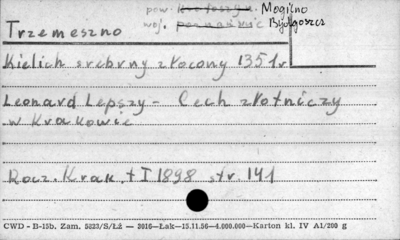 pow. Krotoszyn Mogilno
Trzemeszno woj. poznańskie Bydgoszcz
Kielich srebrny złocony 1351 r
Leonard Lepszy - Cech złotniczy
w Krakowie
Rocz. Krak. t I 1898 str 141
CWD - B-15b, Zam. 5023/S/Łż — 3016—Łak—15.11.56—4.000.000—Karton kl. IV A1/200 g